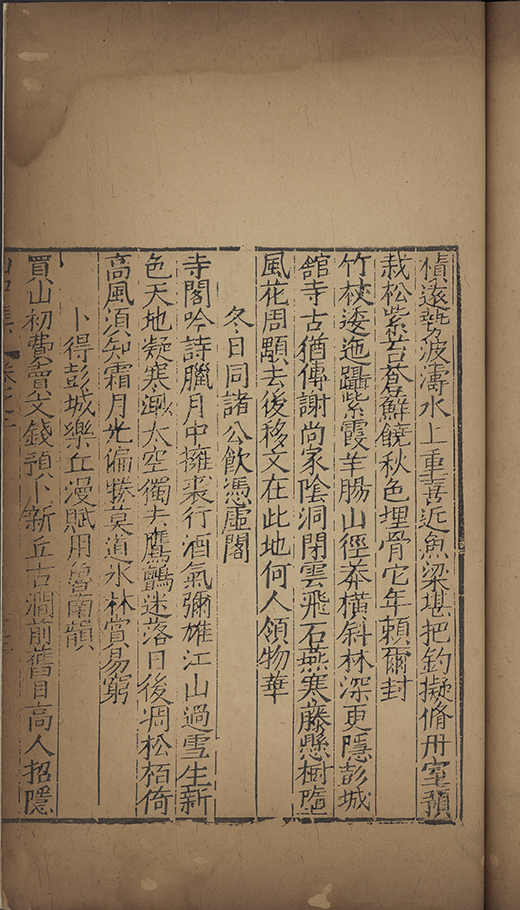 積遠勢波濤水上重喜近魚梁堪把釣擬脩丹室預
栽松紫苔蒼蘚饒秋色埋骨它年賴爾封
竹杖逶迤躡紫霞羊腸山徑莽橫斜林深更隱彭城
舘寺古猶傳謝尚家陰洞閉雲飛石燕寒藤懸樹墮
風花周顒去後移文在此地何人領物華
冬日同諸公飲憑虛閣
寺閣吟詩臘月中擁裘行酒氣彌雄江山過雪生新
色天地疑寒涵太空獨去鷹鸇迷落日後凋松栢倚
高風須知霜月光偏勝莫道氷林賞易窮
卜得彭城樂丘漫賦用魯南韻
買山初費賣文錢預卜新丘古澗前舊日高人招隱